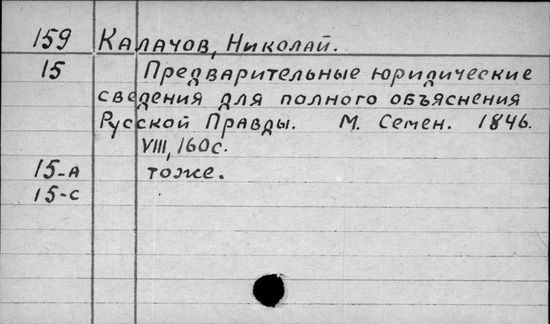 159 Калачов, Николай.
15 Предварительные юридические
сведения для полного объяснения
Русской Правды. М. Семен. 1846.
VIII, 160с.
15-А тоже.
15-С